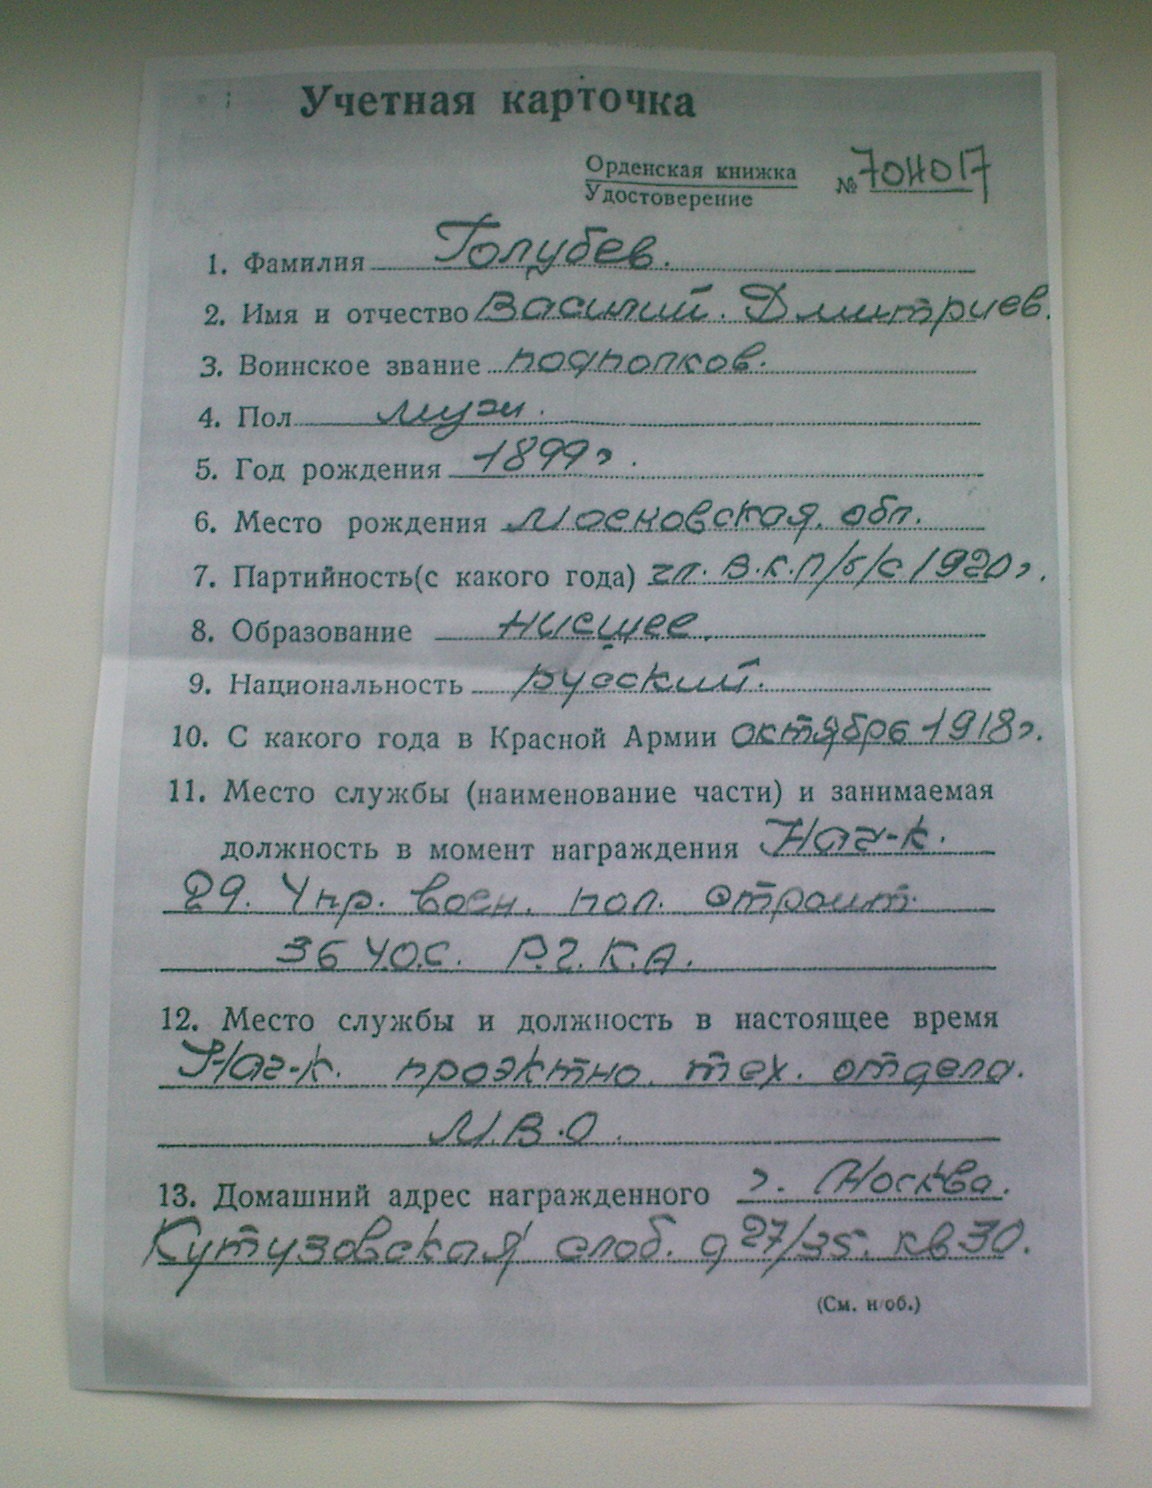 Учетная карточка
Орденская книжка
Удостоверение № 704017
1. Фамилия Голубев.
2. Имя и отчество Василий. Дмитриев.
3. Воинское звание подполков.
4. Пол муж.
5. Год рождения 1899 г.
6. Место рождения Московская. обл.
7. Партийность(с какого года) чл. В.К.П/б/с 1920 г.
8. Образование низшее.
9. Национальность русский.
10. С какого года в Красной Армии октябрь 1918 г.
11. Место службы (наименование части) и занимаемая
должность в момент награждения Нач-к.
29. Упр. воен. пол. строит.
36 У.О.С. Р.Г.К.А.
12. Место службы и должность в настоящее время
Нач-к. проэктно. тех. отдела.
М.В.О.
13. Домашний адрес награжденного г. Москва.
Кутузовская слоб. д 27/35. кв 30.
(См. н/об.)